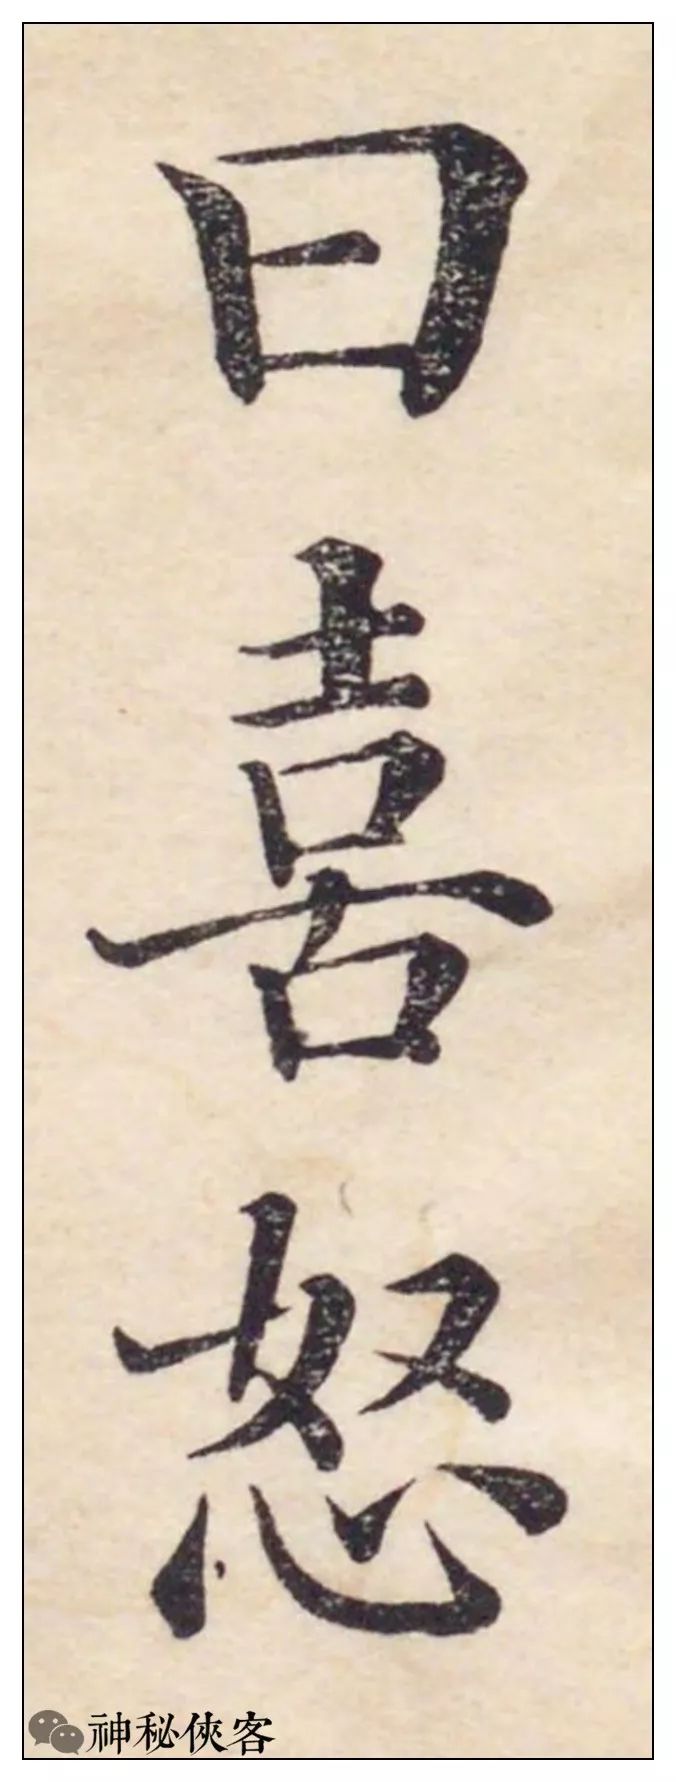 曰喜怒
神秘俠客